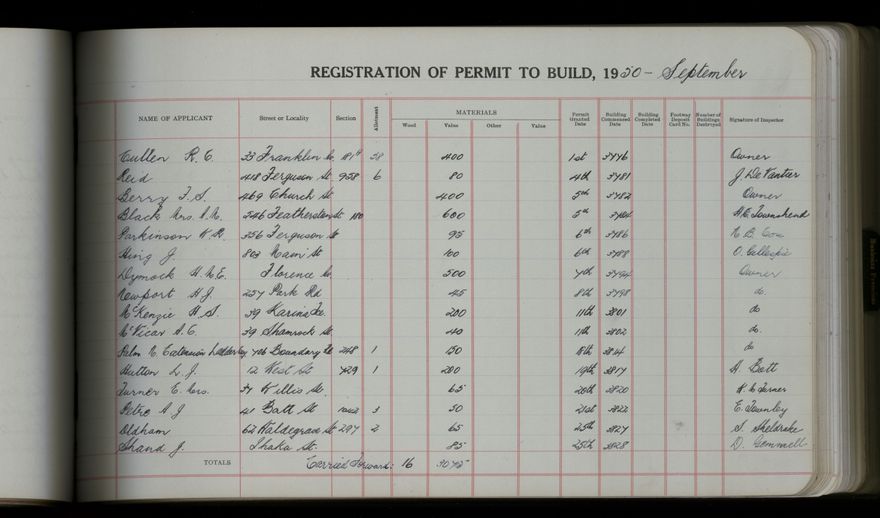 REGISTRATION OF PERMIT TO BUILD, 1950 - September
NAME OF APPLICANT Street or Locality Section Allotment MATERIALS Permit Granted Date Building Commenced Date Building Completed Date Footway Deposit Card No. Number of Buildings Destroyed Signature of Inspector
Wood Value Other Value
Cullen R. C. 33 Franklin 38 400 1st 3776 Owner
Reid 418 Ferguson St. 958 6 80 4th 3781 J De Vantier
Berry 469 Church St 400 5th 3782 Owner
Black Mrs. 546 Featherston St 600 5th Townshend
Parkinson 356 Ferguson St 95 6th 3786 Cox
King J 803 Main St 100 6th 3788 O. Gillespie
Dymock Florence 500 7th 3794 Owner
Newport H. J. 257 Park Rd 45 8th 3798 do.
McKenzie 39 200 11th 3801 do
McVicar A. C. 39 Shamrock St 40 11th 3802 do.
Palm N. Extension 706 Boundary 248 1 150 18th 3814 do
Hutton L. J. 12 West St 729 1 200 19th 3817 A. Bott
Turner E. Mrs. 37 Willis St. 65 20th 3820 Turner
Petre A J 41 Batt St 3 50 21st 3822 E. Townley
Oldham 62 Waldegrave St 297 2 65 25th 3827 S. Sheldrake
Shand J. Shaka St. 85 25th 3828 D. Gemmell
TOTALS Carried Forward: 16 3075